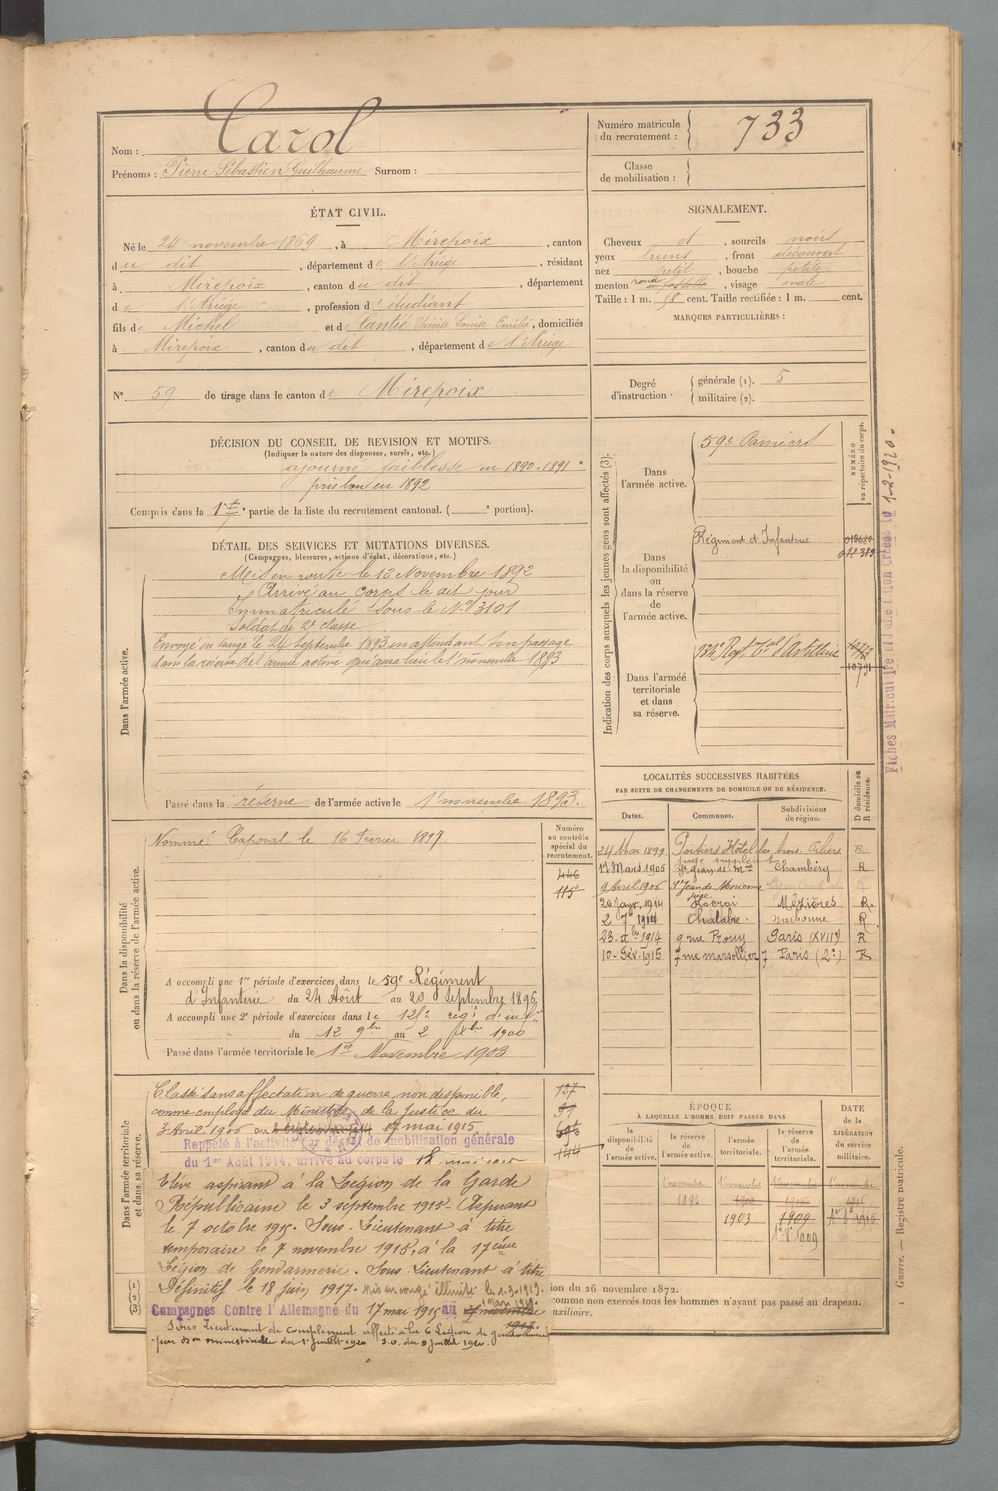 Nom : Carol
Prénoms : Pierre Sébastien Guilhaume Surnom :
Numéro matricule du recrutement : 733
Classe de mobilisation :
ÉTAT CIVIL.
Né le 24 novembre 1869, à Mirepoix, canton
du dit, département de l'Ariège, résidant
à Mirepoix, canton du dit, département
de l'Ariège, profession d'étudiant
fils de Michel et de Lantié Louise Emilie, domiciliés
à Mirepoix, canton du dit, département de l'Ariège
N° 59 de tirage dans le canton de Mirepoix
SIGNALEMENT.
Cheveux et, sourcils noirs
yeux bruns, front découvert
nez petit, bouche petite
menton rond, visage ovale
Taille : 1 m. cent. Taille rectifiée : 1 m. cent.
MARQUES PARTICULIÈRES :
Degré d'instruction : générale (1). 5
militaire (2).
DÉCISION DU CONSEIL DE REVISION ET MOTIFS.
(Indiquer la nature des dispenses, sursis, etc.)
ajourné faiblesse en 1890-1891
pris bon en 1892
Compris dans la 1re partie de la liste du recrutement cantonal. ( portion).
DÉTAIL DES SERVICES ET MUTATIONS DIVERSES.
(Campagnes, blessures, actions d'éclat, décorations, etc.)
Dans l'armée active.
Mis en route le 12 Novembre 1892
Arrivé au corps le dit jour
Immatriculé sous le N° 3101
Soldat de 2e classe
Envoyé en congé le 24 Septembre 1893 en attendant son passage
dans la réserve de l'armée active qui aura lieu le 1er novembre 1893
Passé dans la réserve de l'armée active le 1er novembre 1893.
Dans la disponibilité ou dans la réserve de l'armée active.
Nommé Caporal le 16 février 1897.
Numéro au contrôle spécial du recrutement.
446
115
A accompli une 1re période d'exercices dans le 59e Régiment
d'Infanterie du 24 Août au 20 Septembre 1896
A accompli une 2e période d'exercices dans le 125e rég. d'inf.
du 12 9bre au 2 Xbre 1900
Passé dans l'armée territoriale le 1er Novembre 1903
Indication des corps auxquels les jeunes gens sont affectés (3).
NUMÉRO au répertoire du corps.
Dans l'armée active.
59e Pamiers
Dans la disponibilité ou dans la réserve de l'armée active.
Régiment d'Infanterie
Dans l'armée territoriale et dans sa réserve.
132e Regt Tal d'Infanterie
Fiches Matricul 1-2-1920.
LOCALITÉS SUCCESSIVES HABITÉES
PAR SUITE DE CHANGEMENTS DE DOMICILE OU DE RÉSIDENCE.
Dates. Communes. Subdivisions de région. D domicile ou R résidence.
24 Mai 1899 Poitiers Hôtel des trois Piliers R
juge suppléant
17 Mars 1905 St Jean de Mne Chambéry R
9 Avril 1906 St Jean de Maurienne R
juge
20 Janv. 1914 Rocroi Mézières R.
2 7bre 1914 Chalabre. Narbonne R
23 Xbre 1914 9 rue Prony Paris (XVIIe) R
10 Fév. 1915 7 rue Marsollier 7 Paris (2e) R
Dans l'armée territoriale et dans sa réserve.
Classé sans affectation de guerre, non disponible,
comme employé du Ministère de la Justice du
3 Avril 1906 au 17 mai 1915
137
91
144
Rappelé à l'activité par décret de mobilisation générale
du 1er Août 1914, arrivé au corps le mai 1915
Elève aspirant à la Légion de la Garde
Républicaine le 3 septembre 1915. Aspirant
le 7 octobre 1915. Sous-Lieutenant à titre
temporaire le 7 novembre 1915, à la 17ème
Légion de Gendarmerie. Sous-Lieutenant à titre
Définitif le 18 juin 1917. Mis en congé illimité le 1-3-1919.
Campagnes Contre l'Allemagne du 17 mai 1915 au 1 Mars 1919.
Sous Lieutenant de complément affecté à la 6 Légion de gendarmerie
par Don ministérielle du 1er Juillet 1920 J.O. du 9 juillet 1920.
ÉPOQUE
À LAQUELLE L'HOMME DOIT PASSER DANS
DATE de la LIBÉRATION du service militaire.
la disponibilité de l'armée active. la réserve de l'armée active. l'armée territoriale. la réserve de l'armée territoriale.
1er novembre 1er novembre 1er novembre 1er novembre
1892
1903 1909
(1)
(2)
(3)
ion du 26 novembre 1872.
comme non exercés tous les hommes n'ayant pas passé au drapeau.
auxiliaire.
Guerre. — Registre matricule.